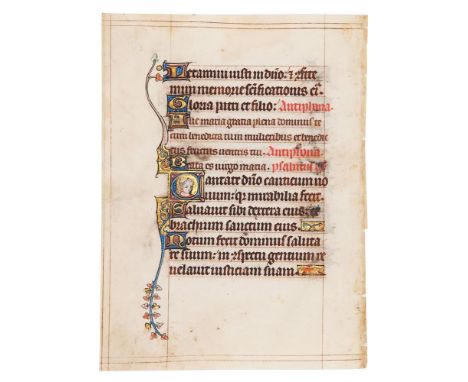 Letamini iusti in dno: & cfite
mini memorie scificationis ei.
Gloria patri et filio: Antiphona
Aue maria gratia plena dominus te
cum benedicta tu in mulieribus et benedic
tus fructus uentris tui. Antiphona
Beata es uirgo maria. psalmus
Cantate dno canticum no
uum: q mirabilia fecit
Saluauit sibi dextera eius: et
brachium sanctum eius.
Notum fecit dominus saluta
re suum: in cspectu gentium re
uelauit iusticiam suam.